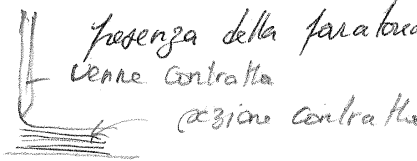 presenza della paratoia
vena contratta
sezione contratta